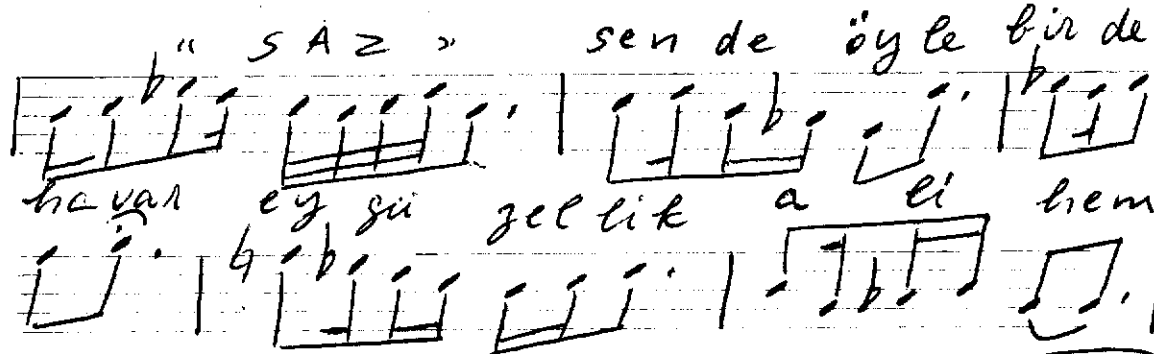 « SAZ » sen de öyle bir de
havar ey gü zel lik a li hem